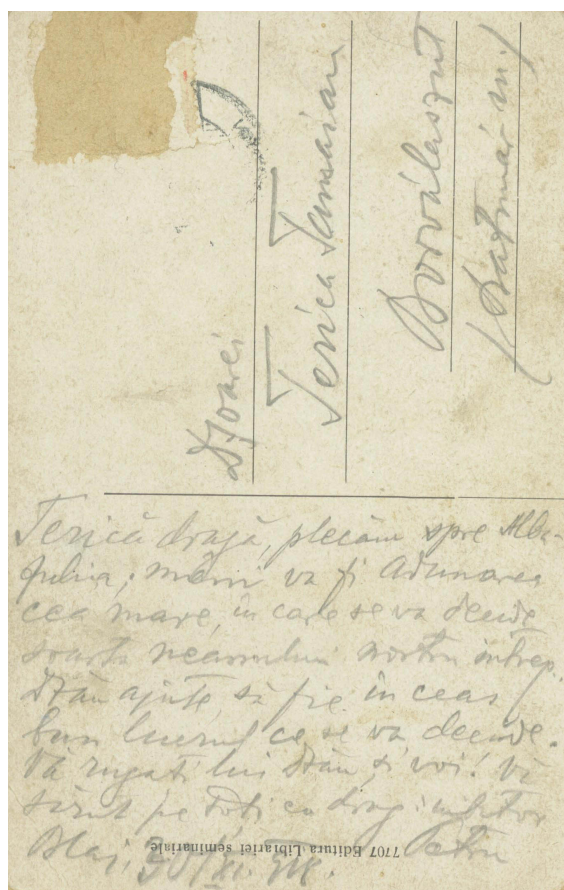 D-șoarei
Terica Tamaian
Borválaszút
/Szatmár m./
Terică dragă, plecăm spre Alba-
Julia; mâni va fi Adunarea
cea mare, în care se va decide
soarta neamului nostru întreg.
Dzău ajute, să fie în ceas
bun lucrul ce se va decide.
Vă rugați lui Dzău și voi! Vă
sărut pe toți cu drag: iubitor
Petru
Blaj. 30/XI. 918.
7707 Editura Librariei seminariale